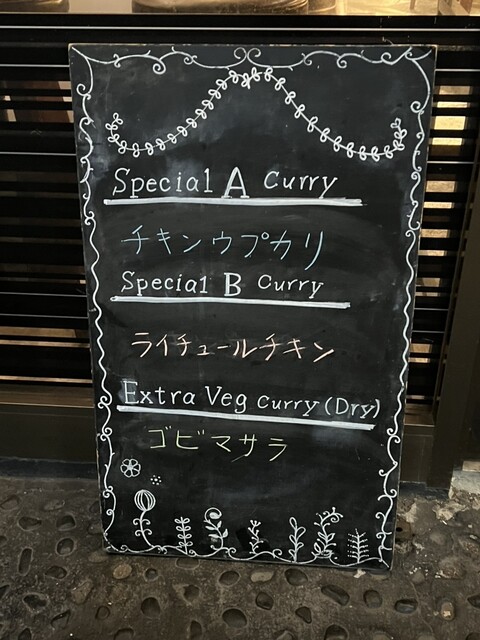 Special A Curry
チキンウプカリ
Special B Curry
ライチュールチキン
Extra Veg Curry (Dry)
ゴビマサラ